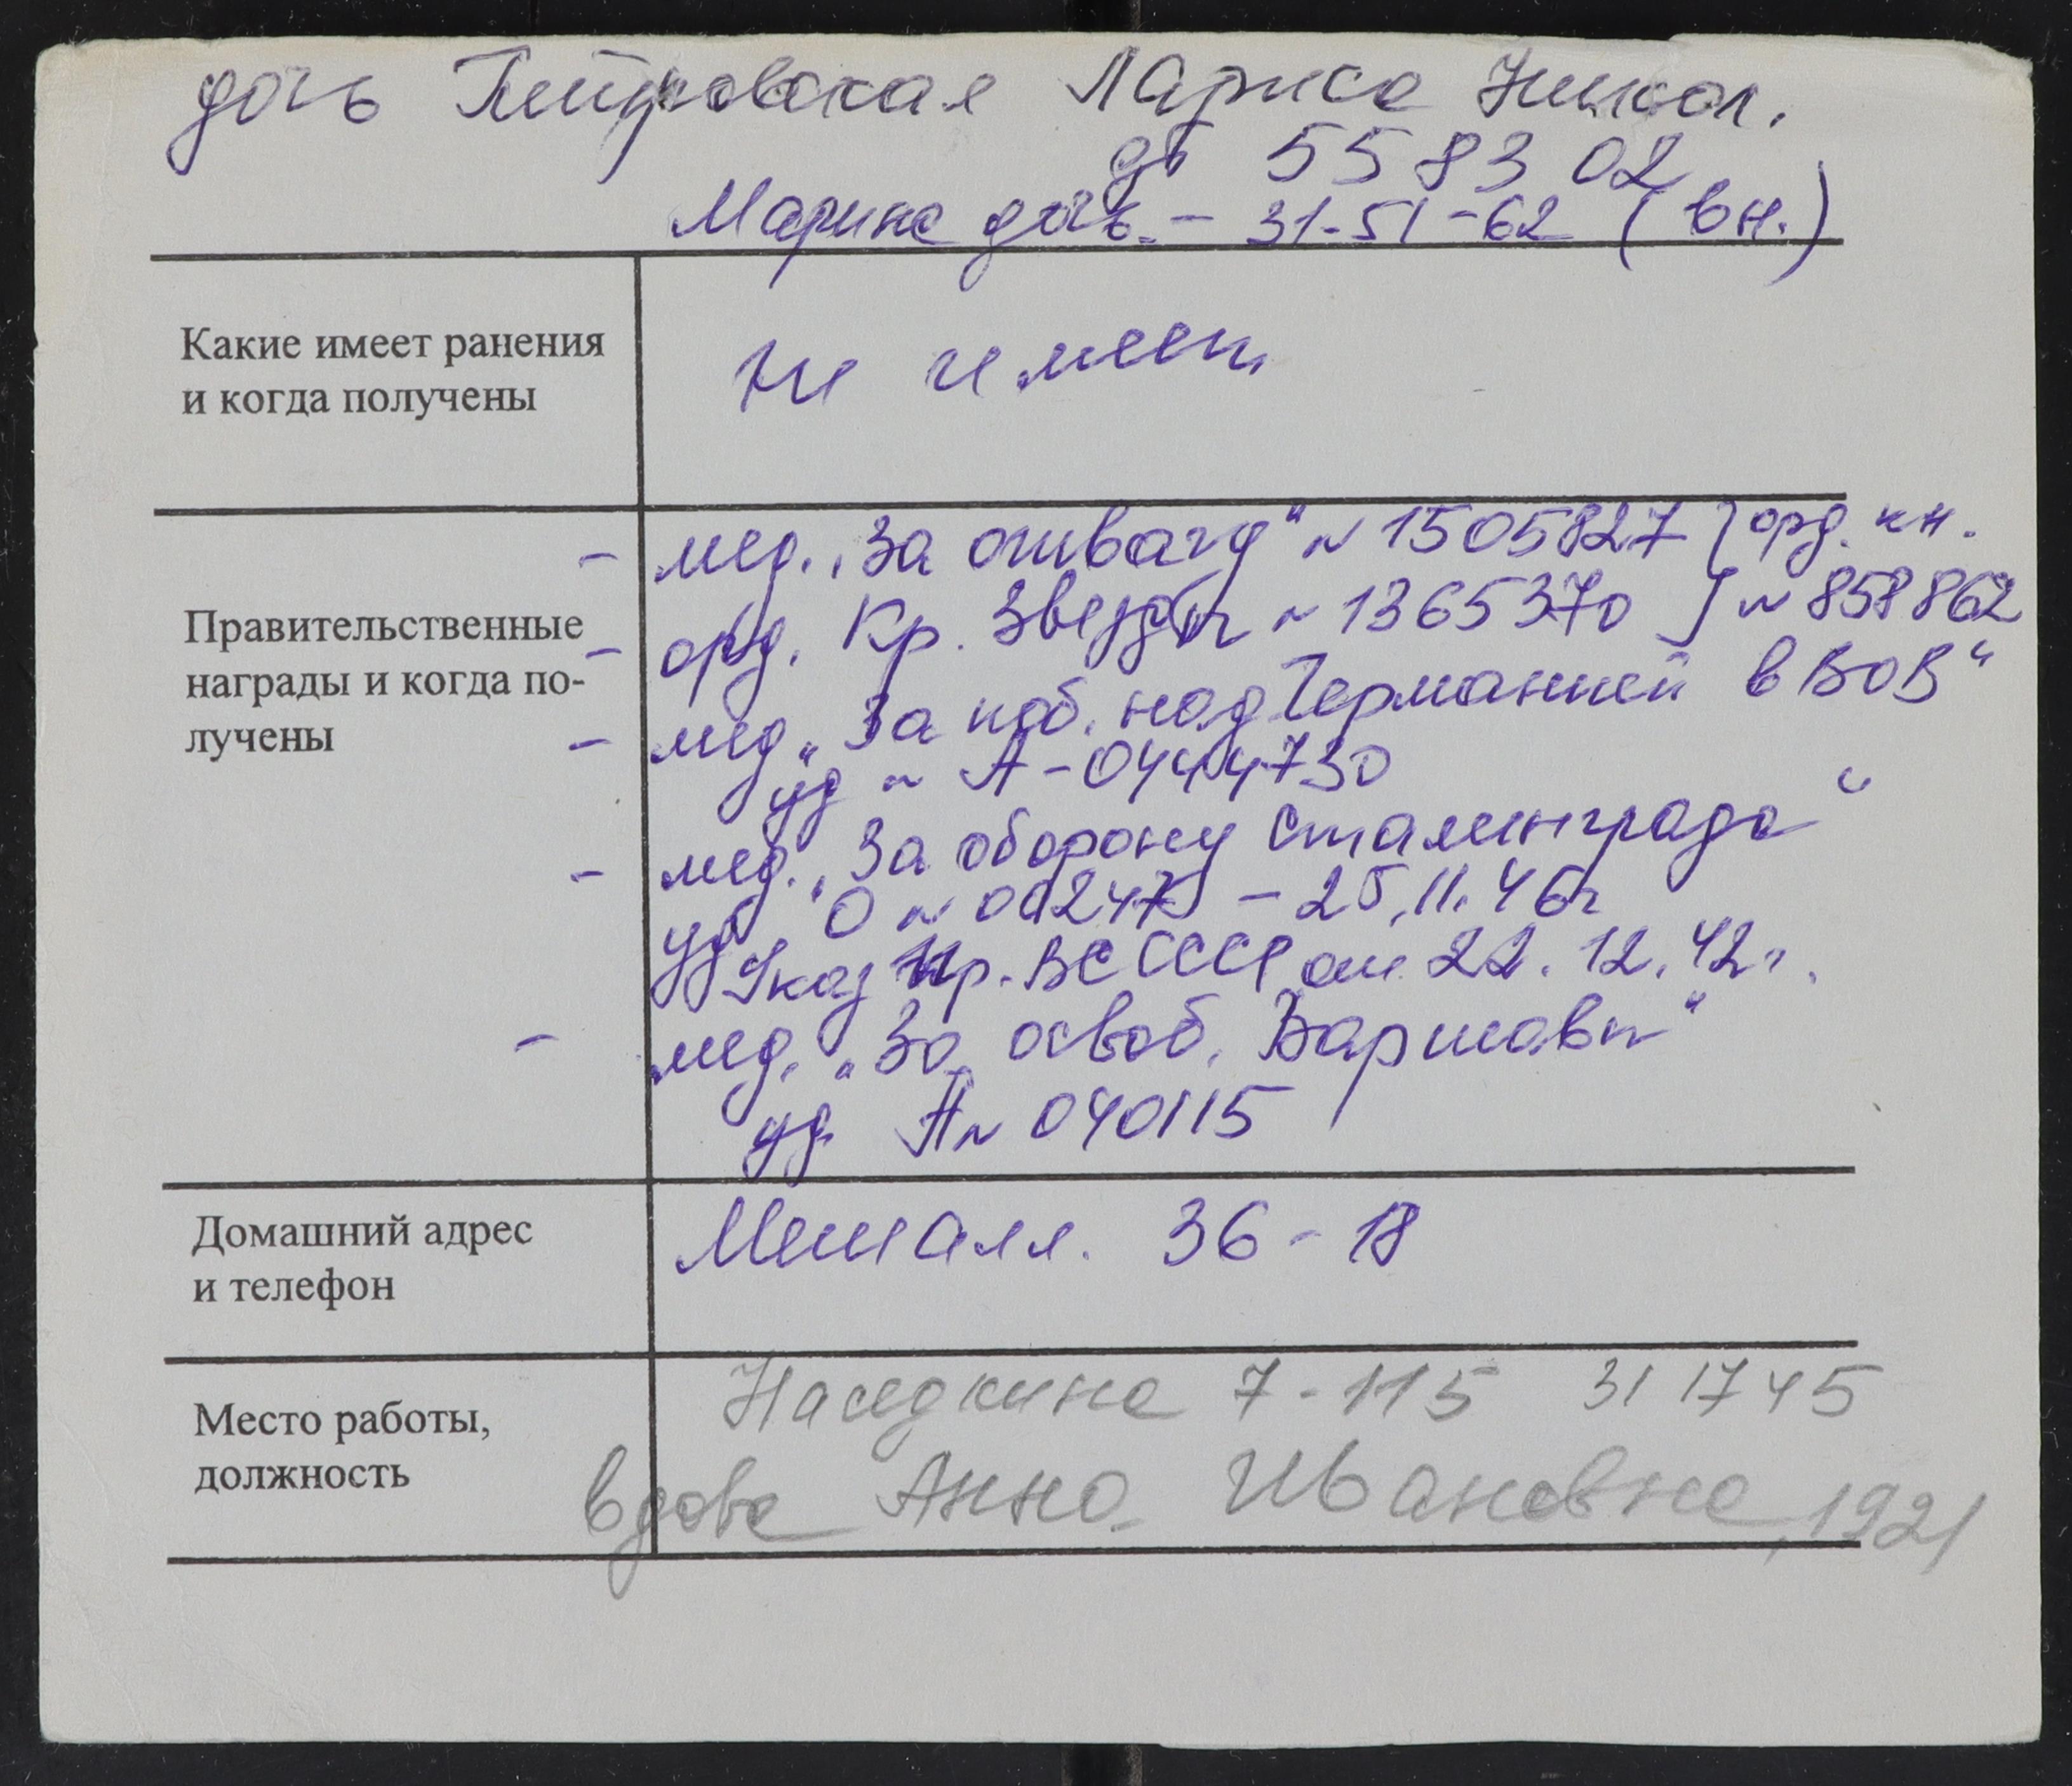 дочь Петровская Лариса Никол.
дт 55 83 02
Марина дочь. - 31-51-62 (вн.)
Какие имеет ранения
и когда получены
не имеет
Правительственные
награды и когда по-
лучены
- мед. „За отвагу" № 1505827 } орд. кн.
- орд. Кр. Звезды № 1365370 } № 858862
- мед „За поб. над Германией в ВОВ"
уд № А-0444730
- мед. „За оборону Сталинграда"
уд О № 00247 - 25.11.46г
Указ Пр. ВС СССР от 22.12.42г.
- мед. „За освоб. Варшавы"
уд А № 040115
Домашний адрес
и телефон
Металл. 36-18
Место работы,
должность
Наседкина 7-115 31 17 45
вдова Анна Ивановна, 1921